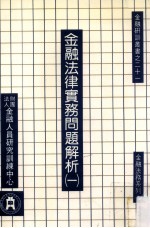 金融研訓叢書之二十一
金融法律實務問題解析(一)
財團法人
金融人員研究訓練中心